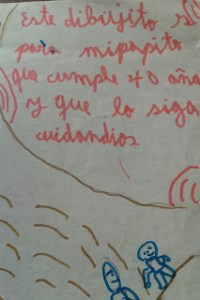 Este dibujito s
para mipapito
que cumple 40 aña
y que lo siga
cuidandios